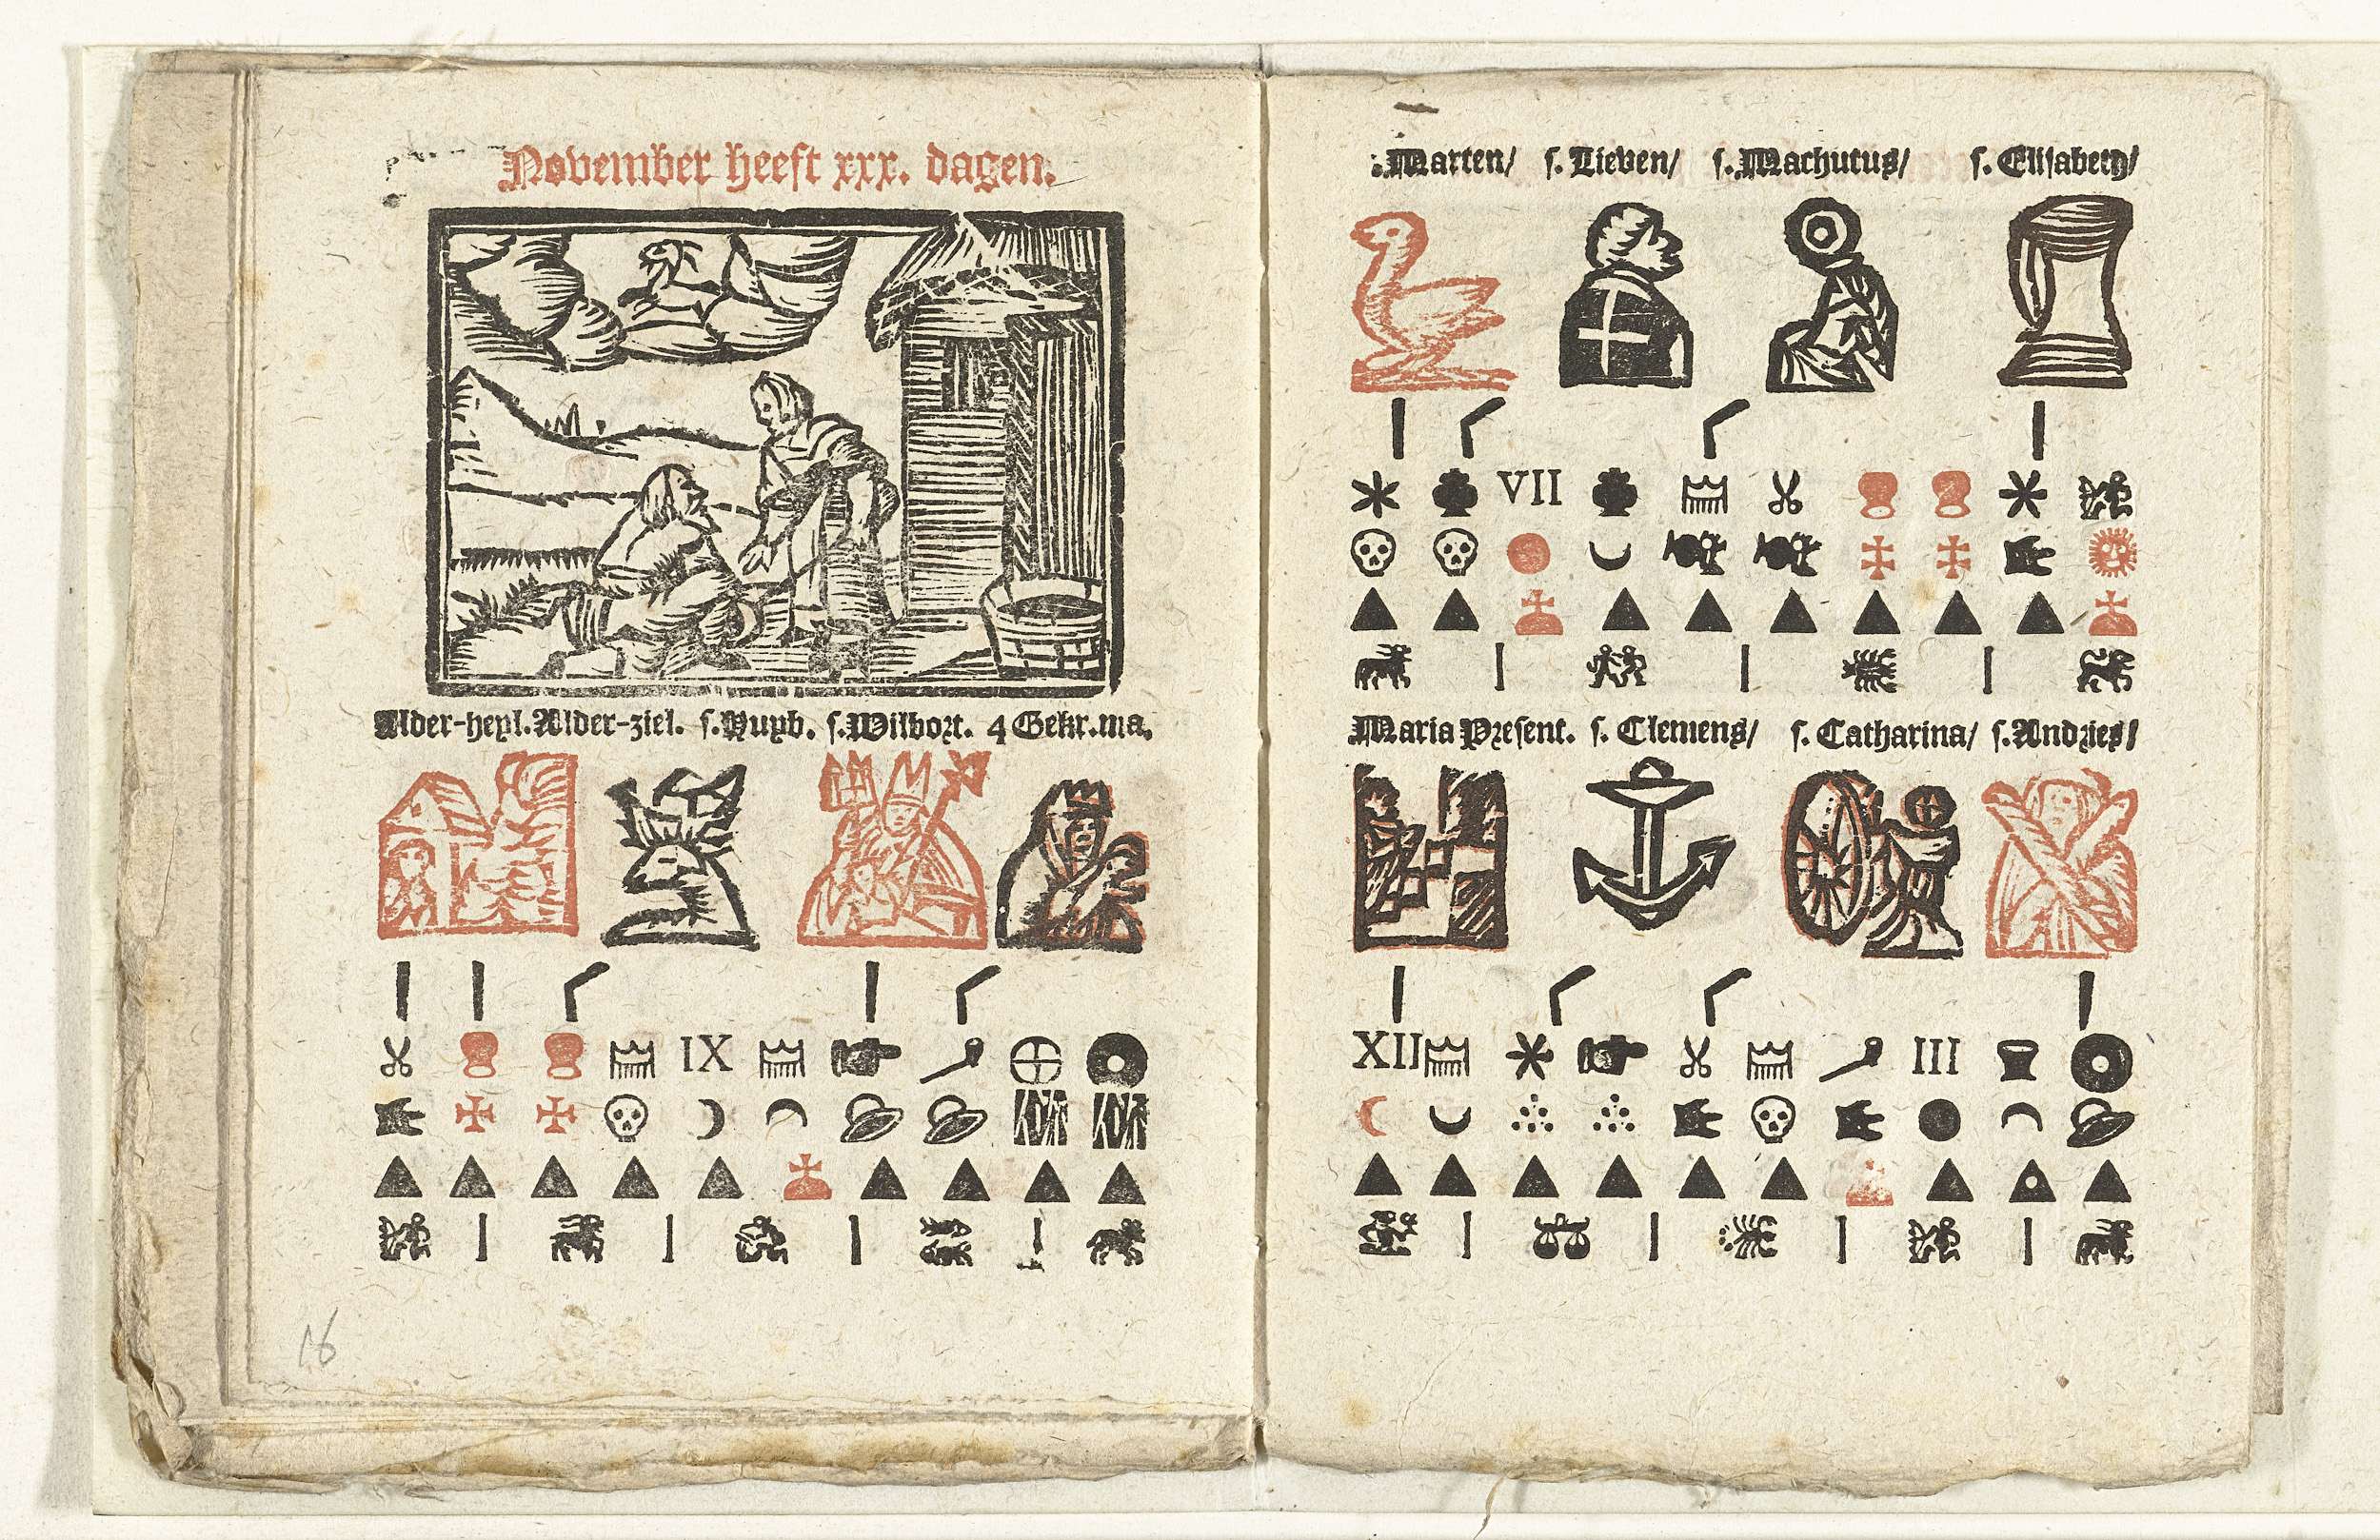 November heeft xxx. dagen.
Alder-heyl. Alder-ziel. s. Huyb. s. Wilbort. 4 Gekr. ma.
IX
16
. Marten/ s. Lieven/ s. Machutus/ s. Elisabeth/
VII
Maria Present. s. Clemens/ s. Catharina/ s. Andries/
XII III